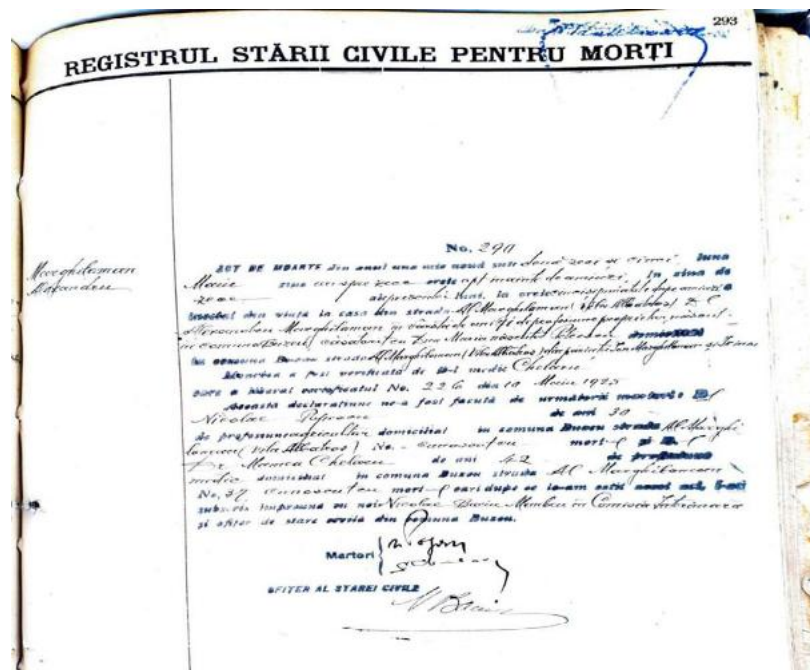 293
REGISTRUL STĂRII CIVILE PENTRU MORȚI
No. 290
Marghiloman
Alexandru
ACT DE MOARTE din anul una mie nouă sute două zeci și cinci, luna
Maiu ziua unsprezece orele opt înainte de amiazi. În ziua de
zece a prezentei luni, la orele cinci după amiazi a
încetat din viață la casa din strada Al. Marghiloman (vila Albatros) D-l
Alexandru Marghiloman în vârstă de ani de profesiune proprietar, născut
în comuna Buzeu, căsătorit cu D-na Maria născută
în comuna Buzeu strada Al. Marghiloman (Vila Albatros) fiul Ion Marghiloman și Irina
Moartea a fost verificată de D-l medic Chelaru
care a liberat certificatul No. 226 din 10 Maiu 1925
Această declarațiune ne-a fost facută de următorii martori: D-l
Nicolae Popescu de ani 30
de profesiune agricultor domiciliat în comuna Buzeu strada Al. Marghi
loman (vila Albatros) No. - cunoscut cu mort-l și D-l
Dr. Mircea Chelaru de ani 42 de profesiune
medic domiciliat în comuna Buzeu strada Al. Marghiloman
No. 37 cunoscut cu mort-l cari după ce le-am citit acest act, l-au
subscris împreună cu noi Nicolae Membru în Comisia Interimara
și ofițer de stare civila din comuna Buzeu.
Martori
OFIȚER AL STAREI CIVILE